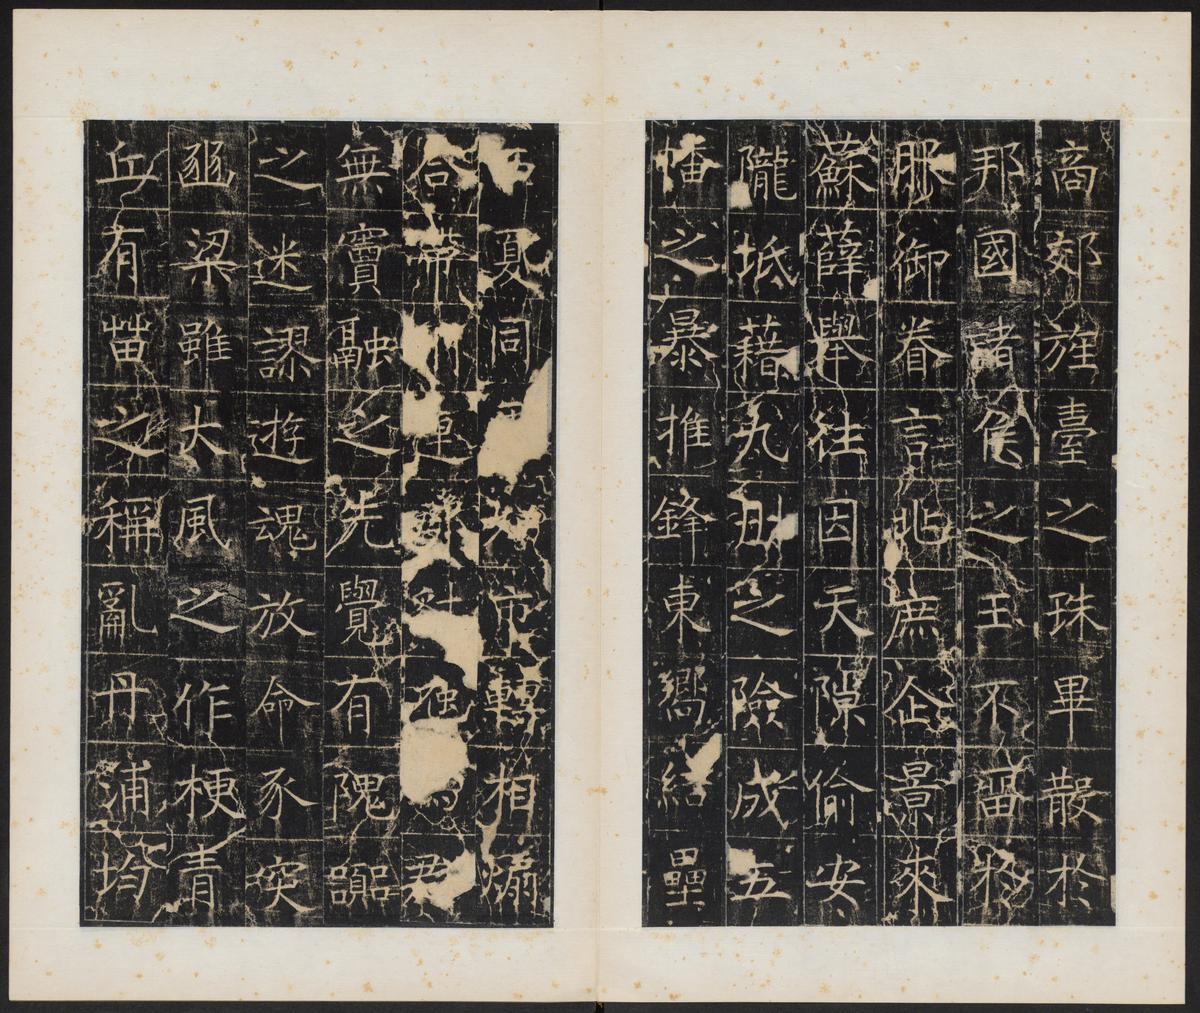 商郊旌臺之珠畢散於
邦國諸侯之玉不留於
服御眷言兆庶企景來
蘇薛舉往因天隙偷安
隴坻藉九之險成五
幡之暴推鋒東嚮結壘
夏同市轉相煽
合帶州連為君
無竇融之先覺有隗囂
之迷謬遊魂放命豕突
豳梁雖大風之作梗青
丘有苗之稱亂丹浦均